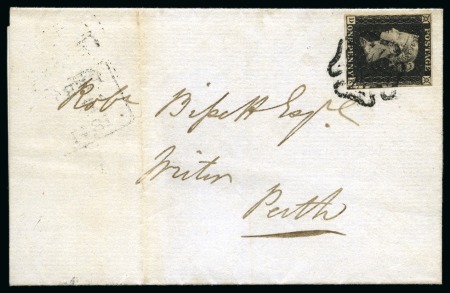 POSTAGE
ONE PENNY
Robt Bissett Esqr
Writer
Perth